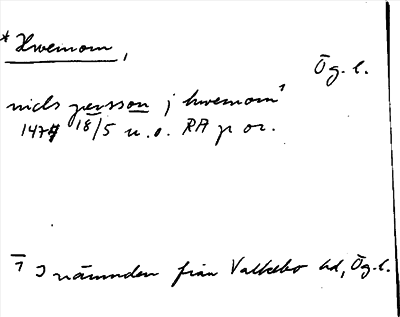 * Hwemom,
Ög. l.
niels persson j hwemom¹
1477 18/5 u. o. RA p or.
¹ I nämnden från Valkebo hd, Ög. l.